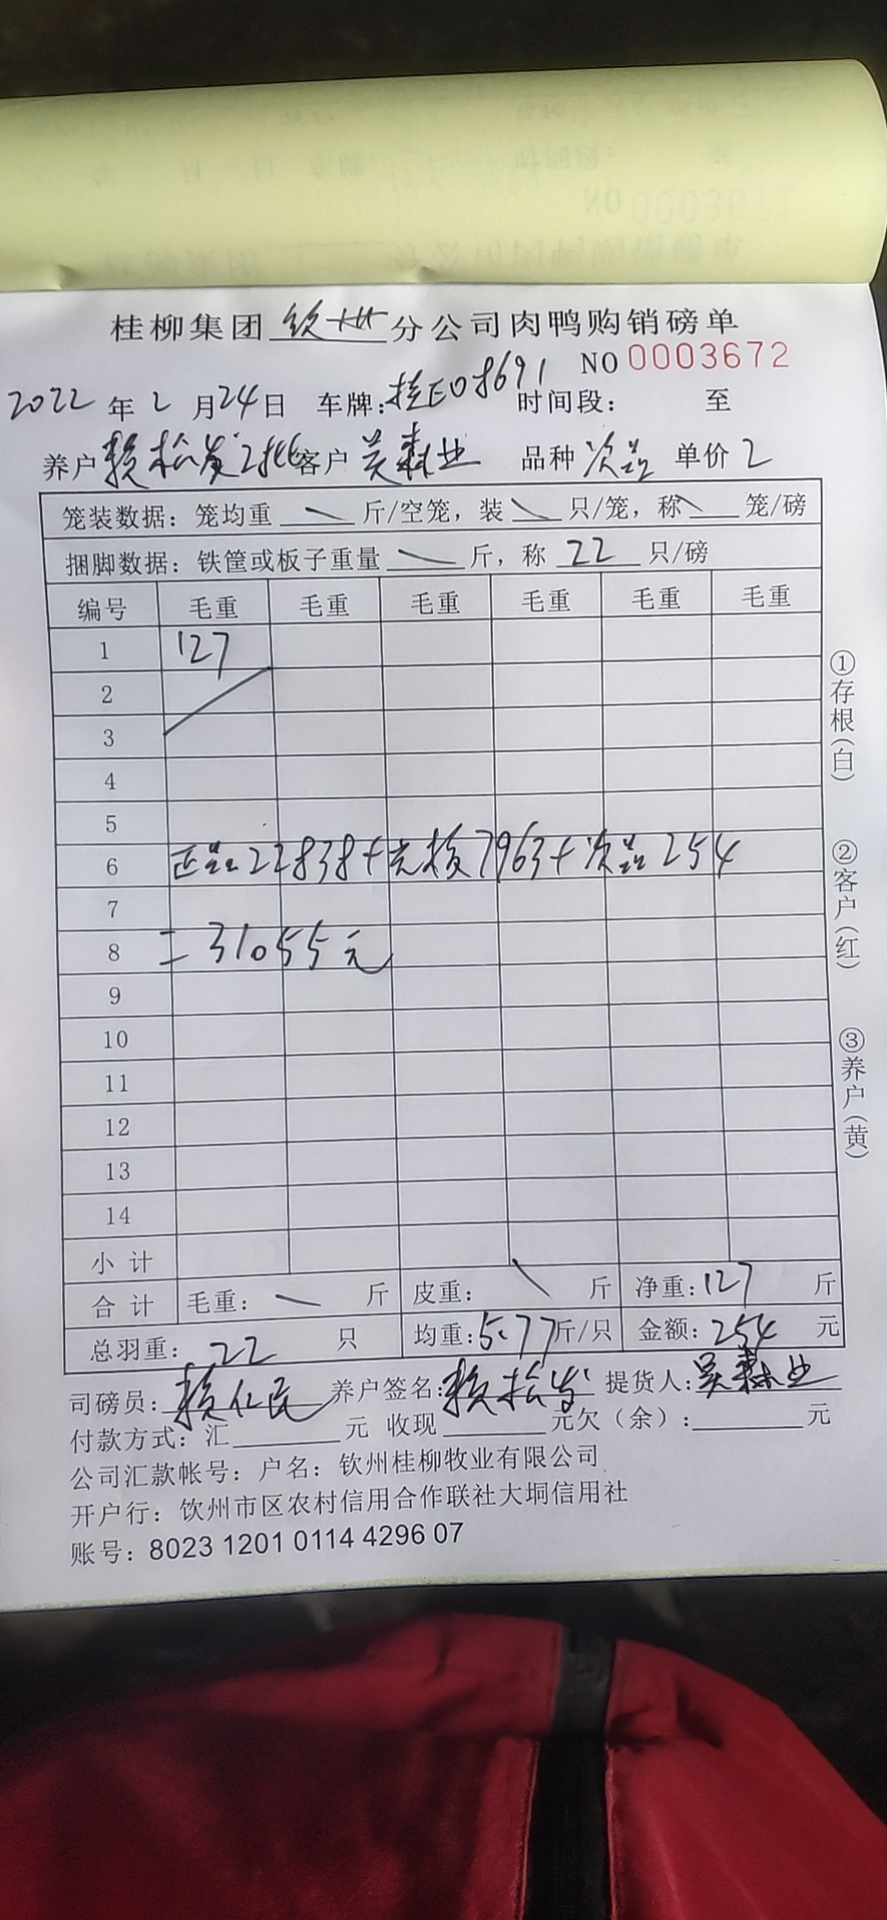 桂柳集团钦州分公司肉鸭购销磅单
NO 0003672
2022年2月24日 车牌:桂E08691 时间段: 至
养户赖松发2批客户吴森业 品种次品 单价2
笼装数据:笼均重 斤/空笼,装 只/笼,称 笼/磅
捆脚数据:铁筐或板子重量 斤,称 22 只/磅
编号 毛重 毛重 毛重 毛重 毛重 毛重
1 127
2
3
4
5
6 正品22838+光板7963+次品254
7
8 =31055元
9
10
11
12
13
14
小计
合计 毛重: 斤 皮重: 斤 净重:127 斤
总羽重:22 只 均重:5.77斤/只 金额:254 元
司磅员:赖仁民 养户签名:赖松发 提货人:吴森业
付款方式:汇 元 收现 元欠(余): 元
公司汇款帐号:户名:钦州桂柳牧业有限公司
开户行:饮州市区农村信用合作联社大垌信用社
账号:8023 1201 0114 4296 07
①存根(白)
②客户(红)
③养户(黄)